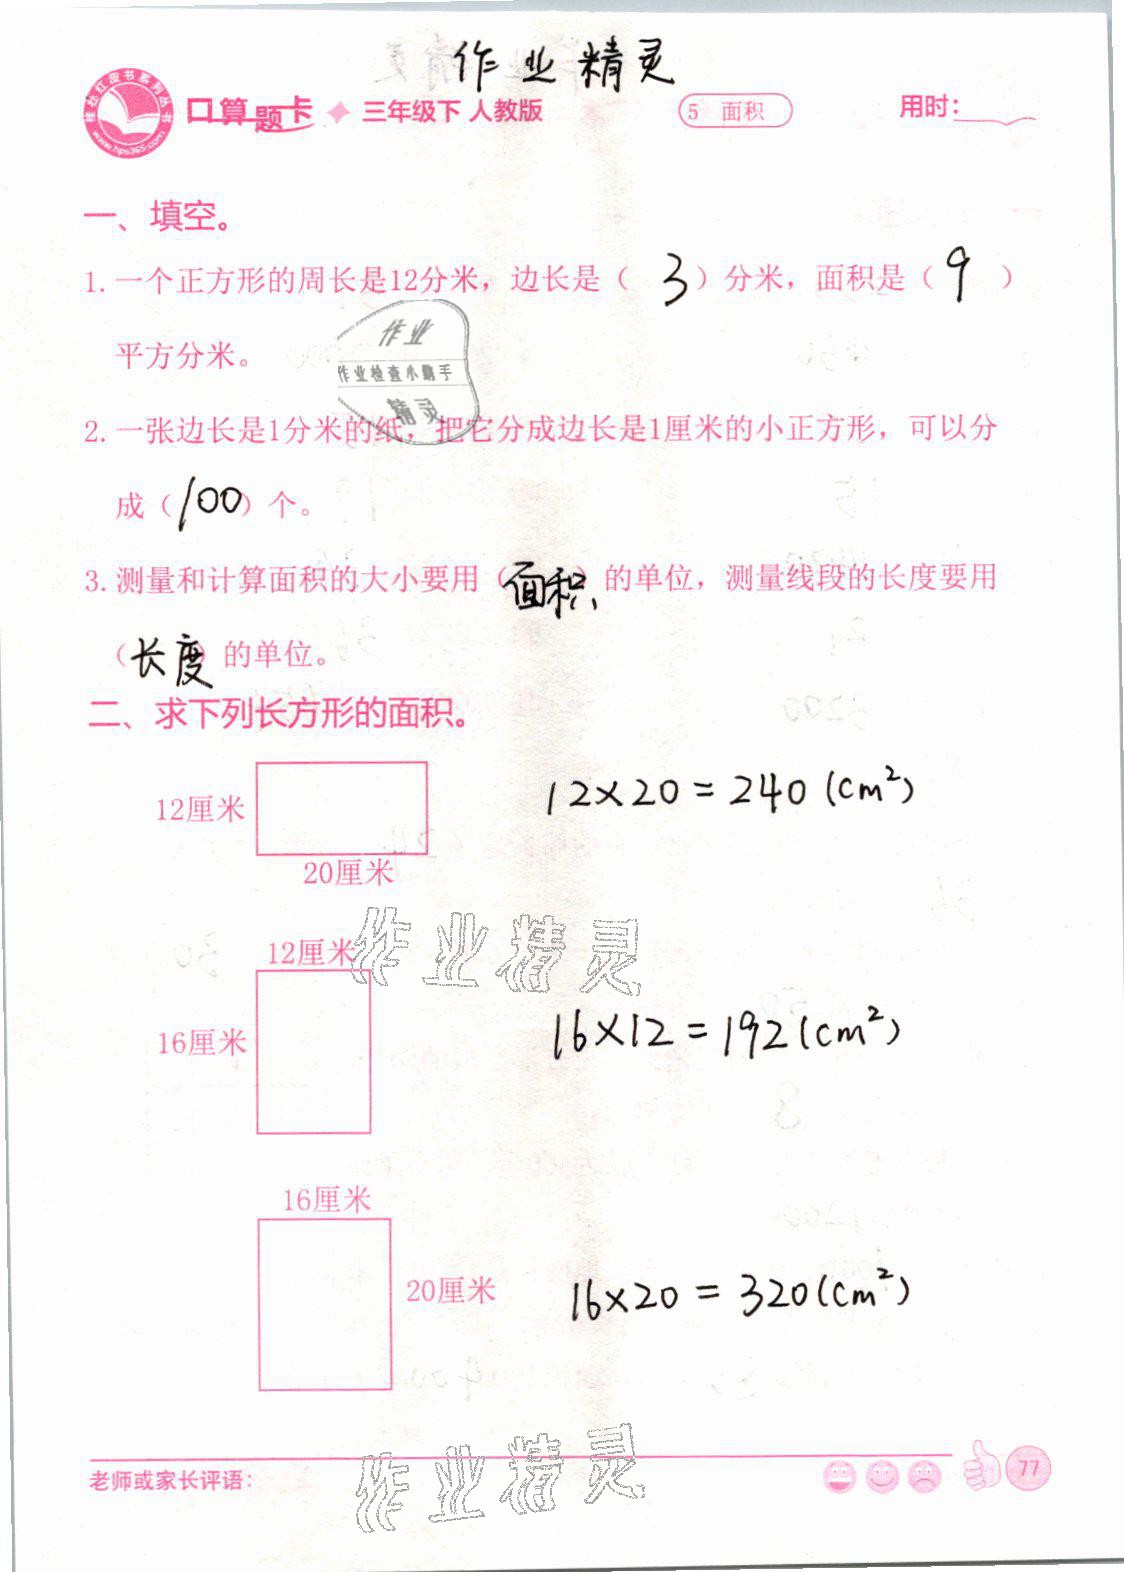 作业精灵
桂壮红皮书系列丛书
www.hps365.com
口算题卡 三年级下 人教版 5 面积 用时：
一、填空。
1. 一个正方形的周长是12分米，边长是（ 3 ）分米，面积是（ 9 ）
平方分米。
作业
作业检查小助手
精灵
2. 一张边长是1分米的纸，把它分成边长是1厘米的小正方形，可以分
成（100）个。
3. 测量和计算面积的大小要用（面积）的单位，测量线段的长度要用
（长度）的单位。
二、求下列长方形的面积。
12厘米
20厘米
12×20=240(cm²)
作业精灵
12厘米
16厘米
16×12=192(cm²)
16厘米
20厘米
16×20=320(cm²)
作业精灵
老师或家长评语：
77